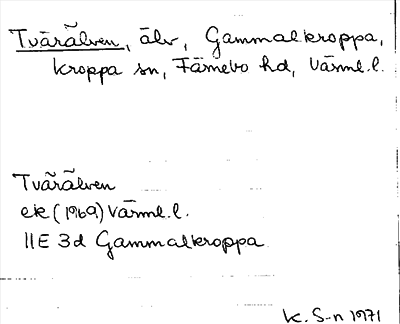 Tvärälven, älv, Gammalkroppa,
Kroppa sn, Färnebo hd, Värml.l.
Tvärälven
ek (1969) Värml.l.
11E 3d Gammalkroppa
K. S-n 1971